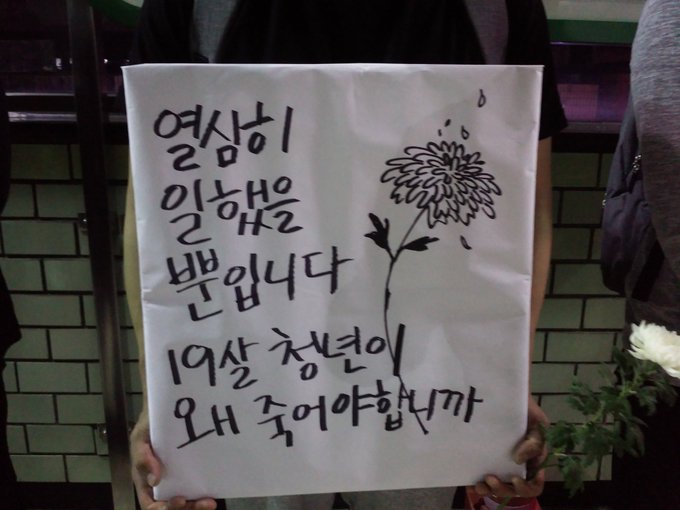 열심히
일했을
뿐입니다
19살 청년이
왜 죽어야합니까